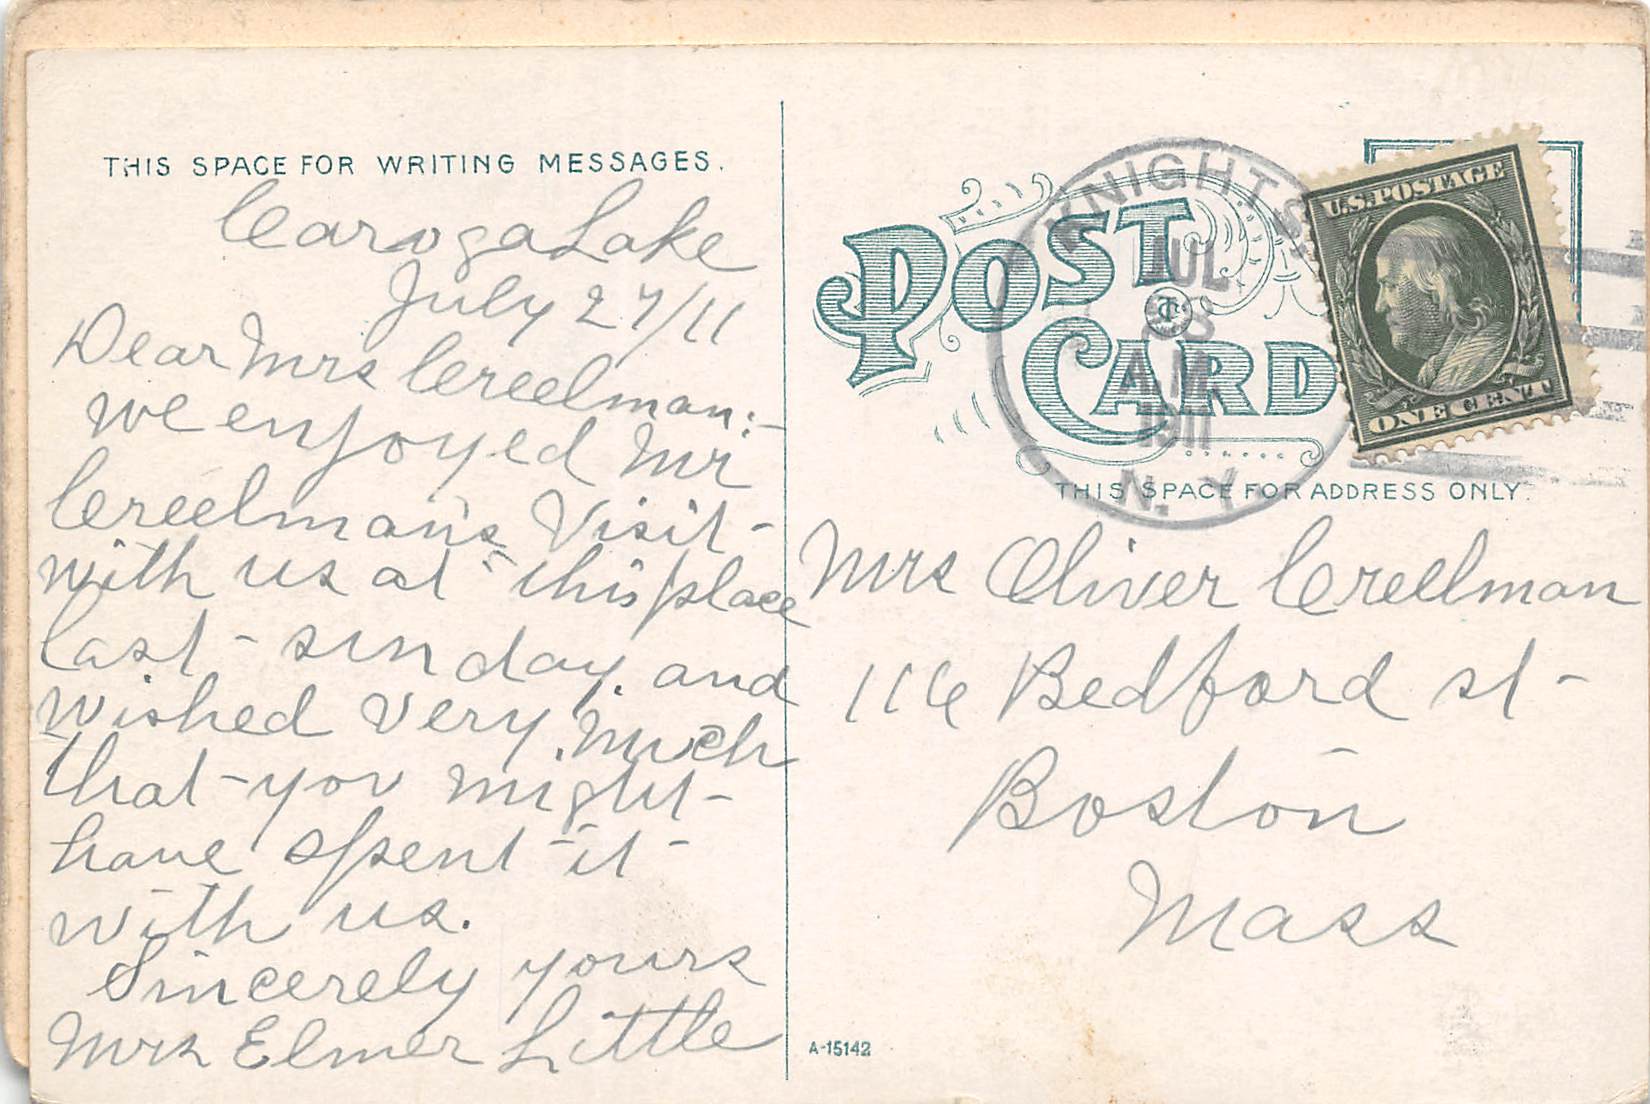 THIS SPACE FOR WRITING MESSAGES.
Caroga Lake
July 27/11
Dear Mrs Creelman:-
we enjoyed Mr
Creelman's Visit
with us at this place
last sunday. and
wished very much
that you might
have spent it
with us.
Sincerely yours
Mrs Elmer Little
POST CARD
KNIGHTS
JUL
28
A.M
1911
N.Y.
U.S. POSTAGE
ONE CENT
THIS SPACE FOR ADDRESS ONLY.
Mrs Oliver Creelman
116 Bedford st
Boston
Mass
A-15142